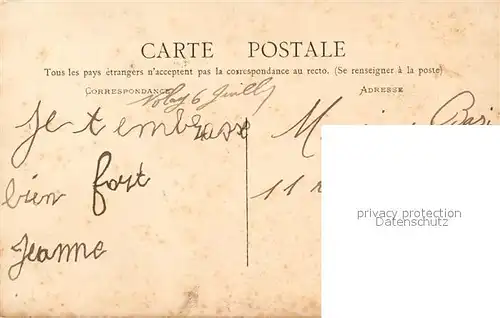 CARTE POSTALE
Tous les pays étrangers n'acceptent pas la correspondance au recto. (Se renseigner à la poste)
CORRESPONDANCE
ADRESSE
6
Je t embrasse
bien fort
Jeanne
11
privacy protection
Datenschutz